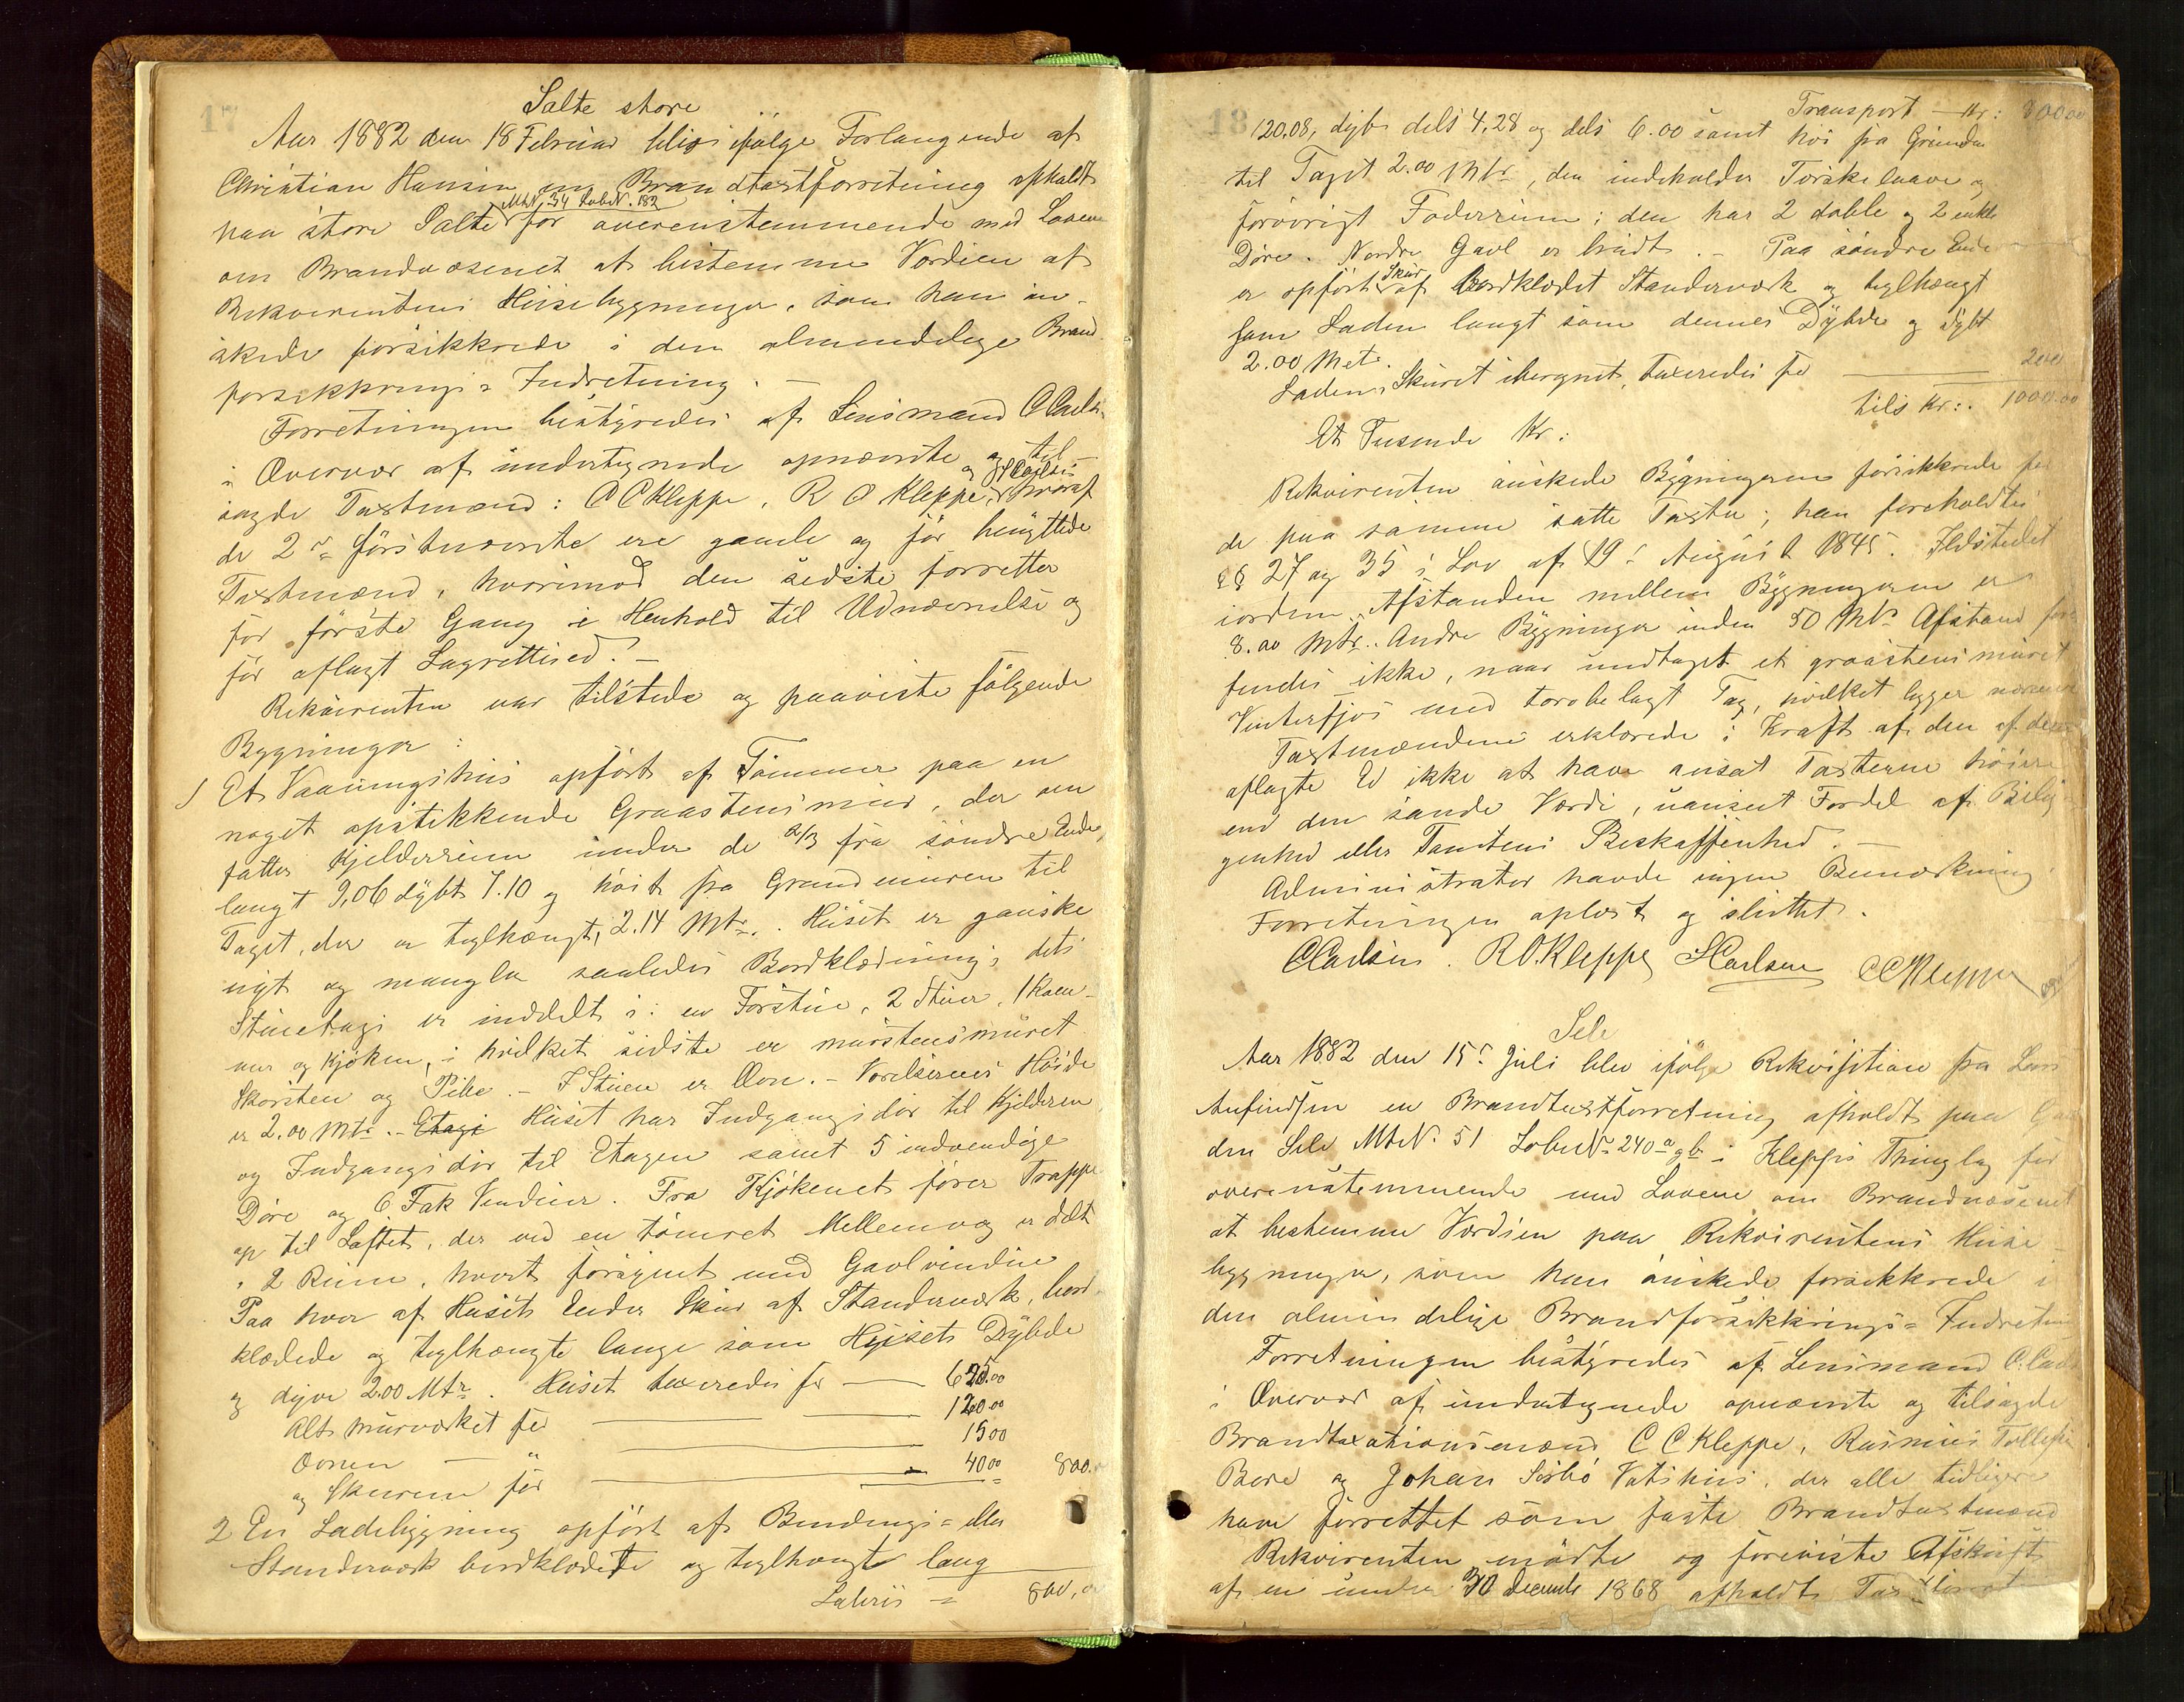 17
Salte store
Aar 1882 den 18 Februar blev ifølge Forlangende af
Christian Hansen en Brandtaxtforretning afholdt
paa store Salte MtrN. 34 LøbeN. 182 for overenstemmende med Lovene
om Brandvæsenet at bestemme Værdien af
Rekvirentens Husebygninger, som han øn-
skede forsikkrede i den almindelige Brand-
forsikkrings-Indretning. —
Forretningen bestyredes af Lensmand C Carlsen
i Overvær af undertegnede opnævnte og til-
sagde Taxtmænd: C C Kleppe, R O Kleppe, og S Carlsen hvoraf
de 2de førstnævnte ere gamle og før benyttede
Taxtmænd, hvorimod den sidste forretter
for første Gang i Henhold til Udnævnelse og
før aflagt Lagretteed. —
Rekvirenten var tilstede og paaviste følgende
Bygninger:
1 Et Vaaningshus opført af Tømmer paa en
noget opstikkende Graastensmur, der om
fatter Kjelderrum under de 2/3 fra søndre Ende,
langt 9,06 dybt 7.10 og høit fra Grundmuren til
Taget, der er teglhængt, 2.14 Mtr. Huset er ganske
nyt og mangler saaledes Bordklædning; dets
Stueetage er inddelt i: en Forstue, 2 Stuer, 1 Kam-
mer og Kjøken, i hvilket sidste er murstensmuret
Skorsten og Pibe. – I Stuen er Ovn. – Værelsernes Høide
er 2.00 Mtr. – Etage Huset har Indgangsdør til Kjelderen
og Indgangsdør til Etagen samt 5 indvendige
Døre og 6 Fak Vinduer. Fra Kjøkenet fører Trappe
op til Loftet, der ved en tømret Mellemvæg er delt
i 2 Rum, hvert forsynet med Gavlvindue
Paa hver af Husets Ender Skur af Standerværk, bord-
klædede og teglhængte lange som Husets Dybde
og dybe 2.00 Mtr. Huset taxeredes for — 625.00
Alt murværket for — 120.00
Ovnen — " 15 00
og Skurene for — 40 00 800.
2 En Ladebygning opført af Bindings- eller
Standerværk bordklædet og teglhængt lang
Lateris = 800,0
18
Transport — Kr: 800.00
20,08, dyb dels 4,28 og dels 6.00 samt høi fra Grunden
til Taget 2.00 Mtr, den indeholder Tørskelaave og
forøvrigt Foderrum; den har 2 doble og 2 enkle
Døre. Nordre Gavl er brudt. – Paa søndre Ende
er opført Skur af Bordklædet Standerværk og teglhængt
som Laden langt som dennes Dybde og dybt
2.00 Met.
Laden, Skuret iberegnet, taxeredes for — 200
tils Kr:. 1000.00
Et Tusende Kr:
Rekvirenten ønskede Bygningerne forsikkrede for
de paa samme satte Taxter; han foreholdtes
§§ 27 og 35 i Lov af 19. August 1845. Ildstedet
iorden. Afstanden mellem Bygningerne er
8.00 Mtr. Andre Bygninger inden 50 Mtr Afstand fore
findes ikke, naar undtaget et graastensmuret
Vinterfjøs med torvbelagt Tag, hvilket ligger nærmere
Taxtmændene erklærede i Kraft af den af dem
aflagte Ed ikke at have ansat Taxterne høiere
end den sande Værdi, uanseet Fordel af Belig-
genhed eller Tomtens Beskaffenhed. —
Administrator havde ingen Bemærkning.
Forretningen oplæst og sluttet.
CCarlsen. R.O.Kleppe S Carlsen CCKleppe
Sele
Aar 1882 den 15. Juli blev ifølge Rekvisition fra Lars
Anfindsen en Brandtaxtforretning afholdt paa Gaar
den Sele MtrN. 51 LøbeN. 240 a og b i Klepps Thinglag for
overenstemmende med Lovene om Brandvæsenet
at bestemme Værdien paa Rekvirentens Huse-
bygninger, som han ønskede forsikkrede i
den almindelige Brandforsikkrings-Indretning
Forretningen bestyredes af Lensmand C. Carls
i Overvær af undertegnede opnævnte og tilsagde
Brandtaxationsmænd C C Kleppe, Rasmus Tollefsen
Bore og Johan Sørbø Vatshus, der alle tidligere
have forrettet som faste Brandtaxtmænd
Rekvirenten mødte og foreviste Afskrift
af en under 30 december 1868 afholdt